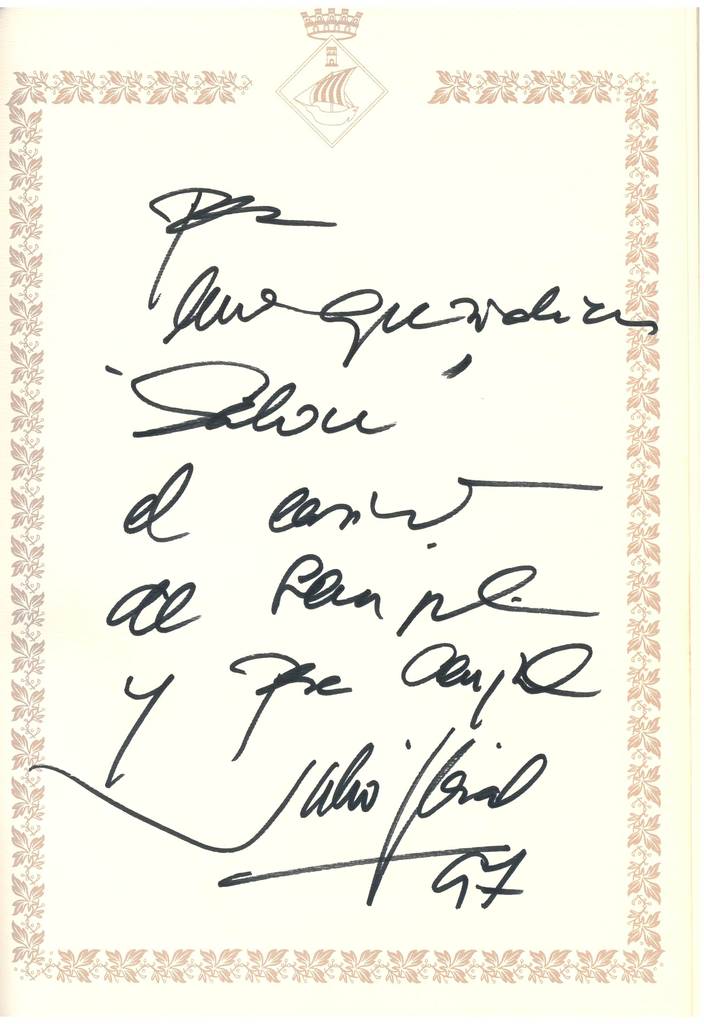 Para
mi queridísimo
"Salou"
el cariño
de siempre
y para siempre
Julio Iglesias
97